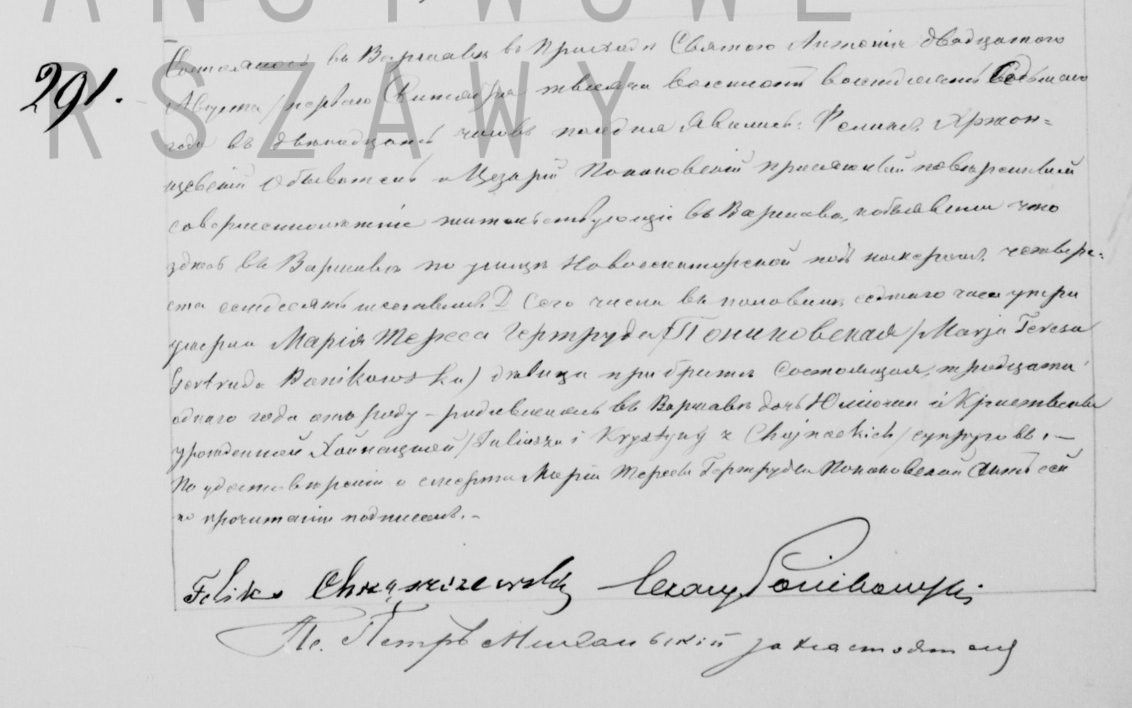 ANGIWOWE
RSZAWY
291.
Состоялось въ Варшавѣ въ Приходѣ Святого Антонія двадцатого
Августа /перваго Сентября тысяча восемьсотъ восемьдесятъ Седьмаго
года въ двѣнадцать часовъ полудня Явились: Феликсъ Хржон=
щевскій Обыватель и Цезарій Пониковскій присяжный повѣренный
совершеннолѣтніе жительствующіе въ Варшавѣ, и объявили что
здѣсь въ Варшавѣ по улицѣ Новосенаторской подъ номеромъ четыре-
ста семдесятъ шестымъ Д Сего числа въ половинѣ седмаго часа утра
умерла Марія Тереса Гертруда Пониковская /Marja Teresa
Gertruda Ponikowska) дѣвица при братѣ Состоящая, тридцати
одного года отъ роду – родившаяся въ Варшавѣ дочь Юліуша и Кристины
урожденной Хойнацкой /Juliusza i Krystyny z Chojnackich/ супруговъ. —
По удостовѣреніи о смерти Маріи Тересы Гертруды Пониковской Актъ сей
по прочитаніи подписанъ. –
Feliks Chrząszczewski Cezary Ponikowski
Кс. Петръ за настоятеля